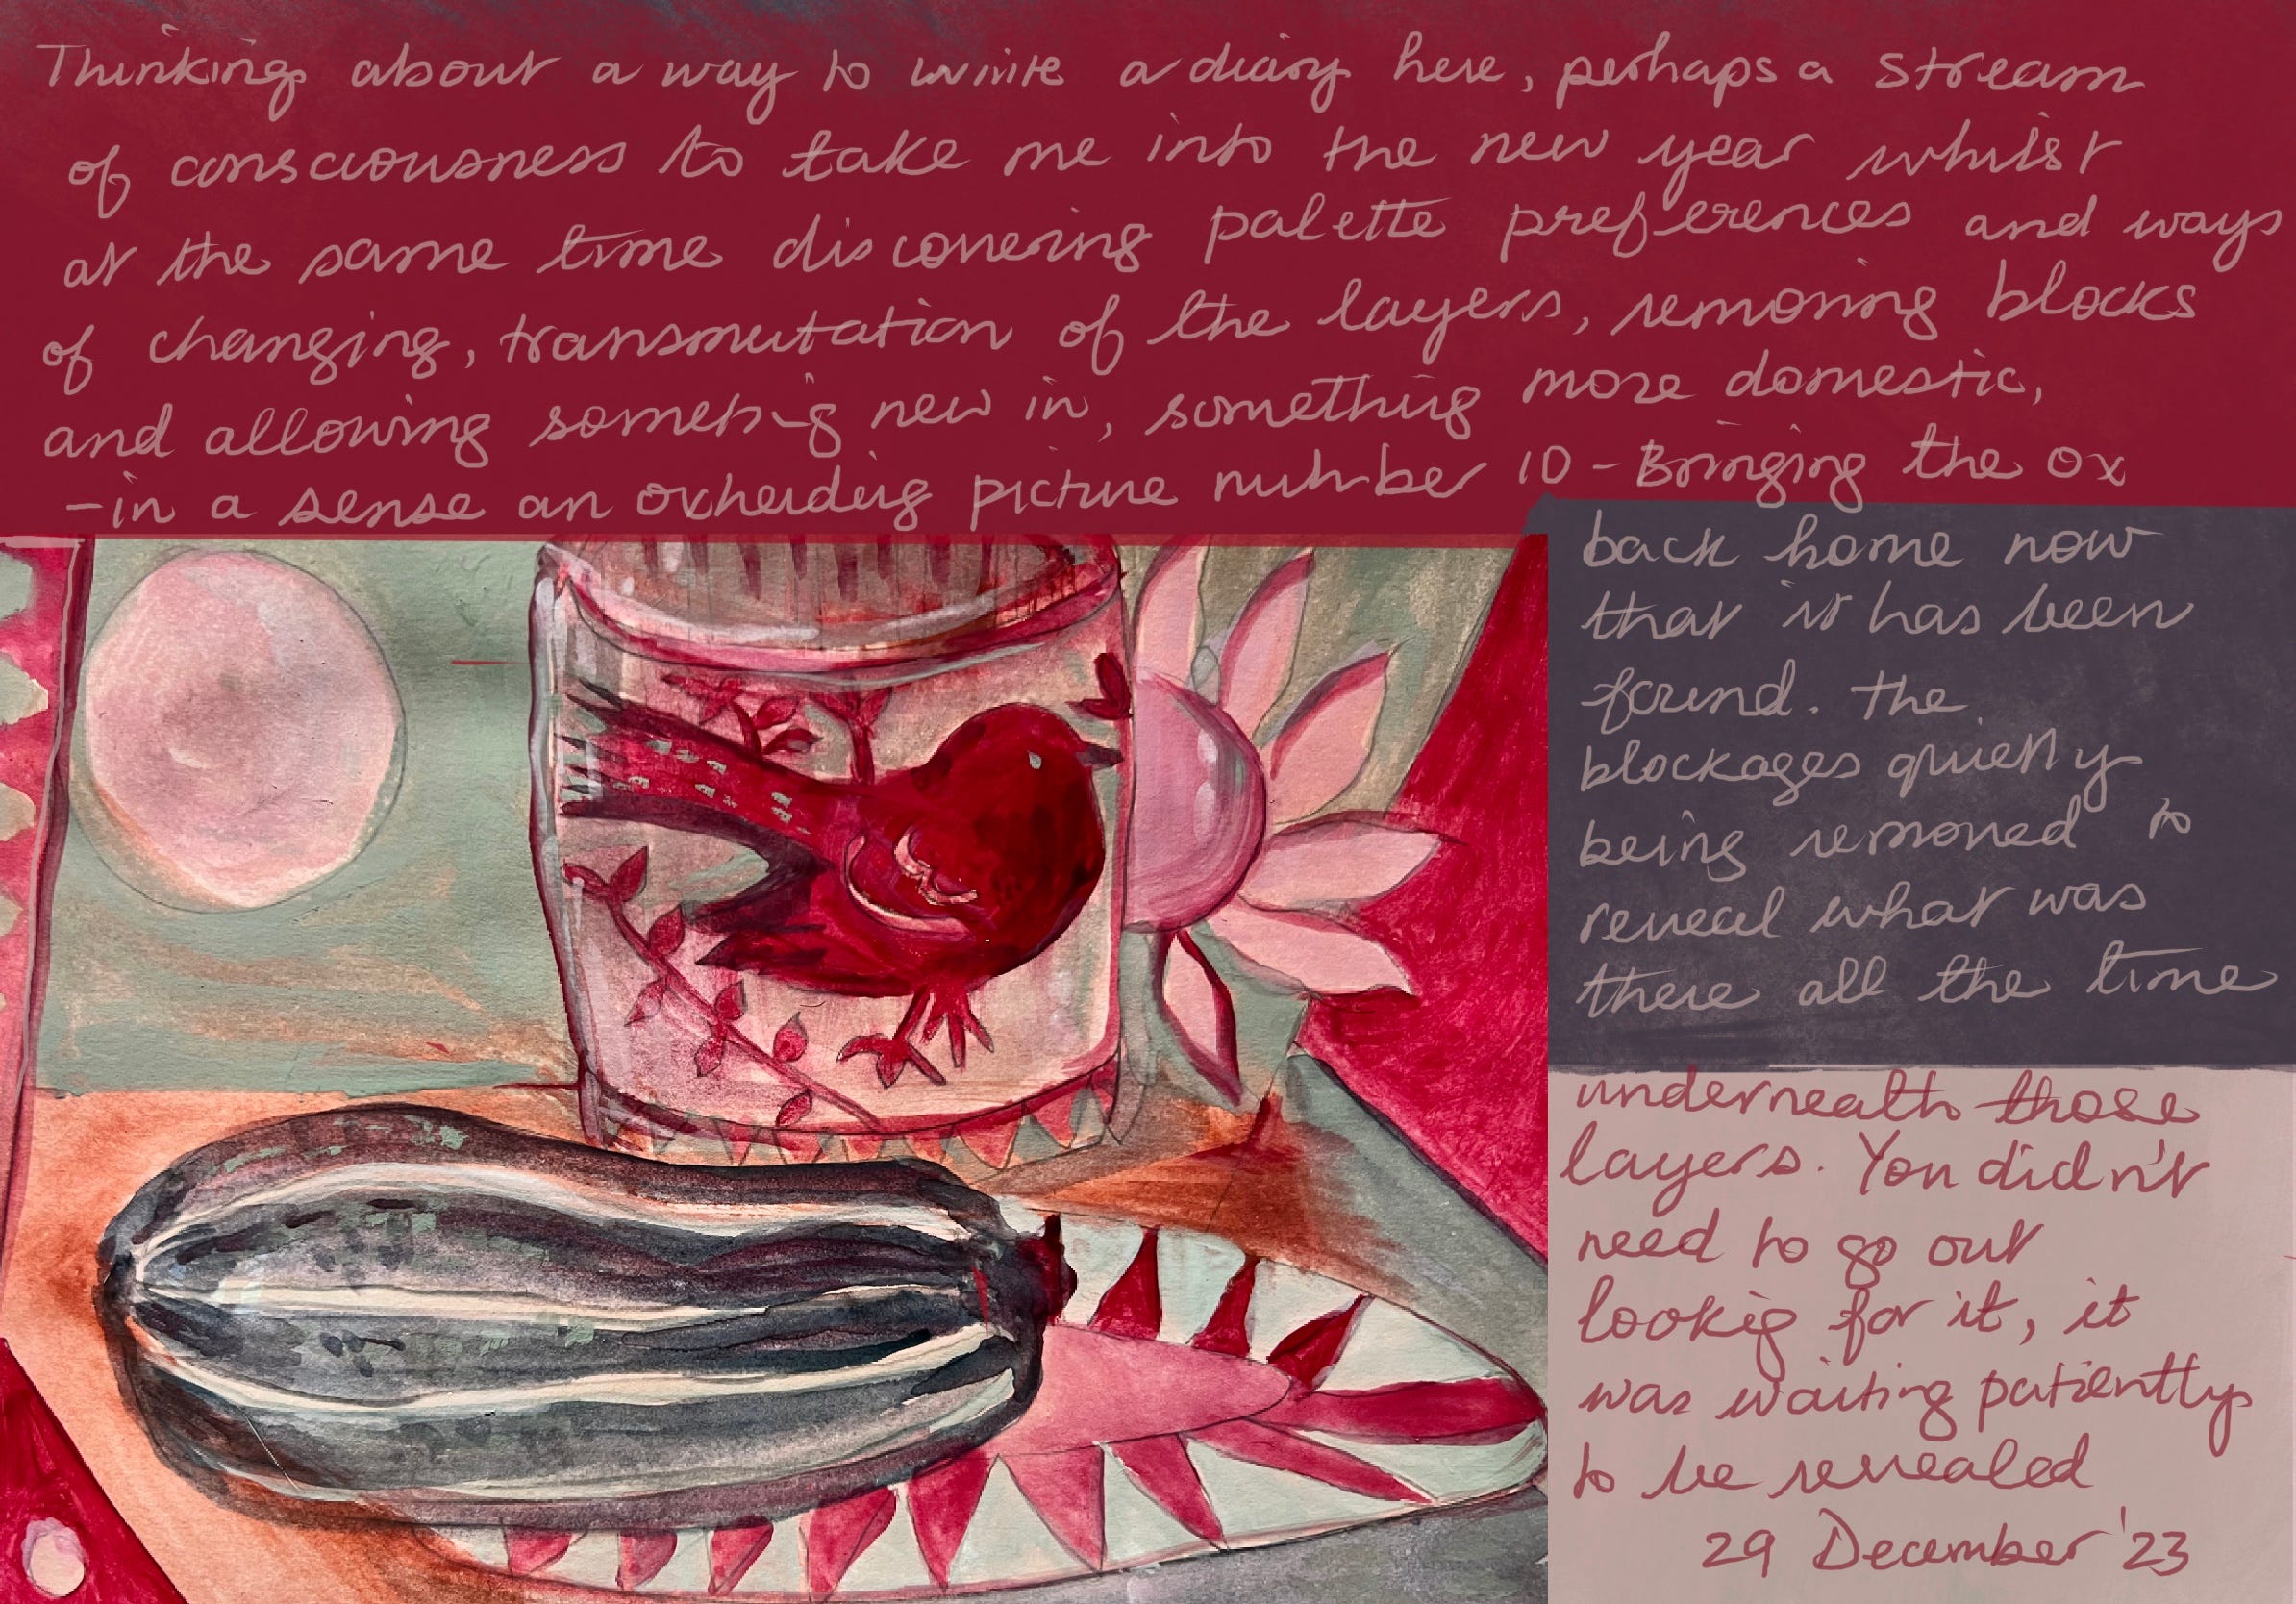 Thinking about a way to write a diary here, perhaps a stream
of consciousness to take me into the new year whilst
at the same time discovering palette preferences and ways
of changing, transmutation of the layers, removing blocks
and allowing something new in, something more domestic,
- in a sense an oxherding picture number 10 - Bringing the ox
back home now
that it has been
found. The
blockages quietly
being removed to
reveal what was
there all the time
underneath those
layers. You didn't
need to go out
looking for it, it
was waiting patiently
to be revealed
29 December '23